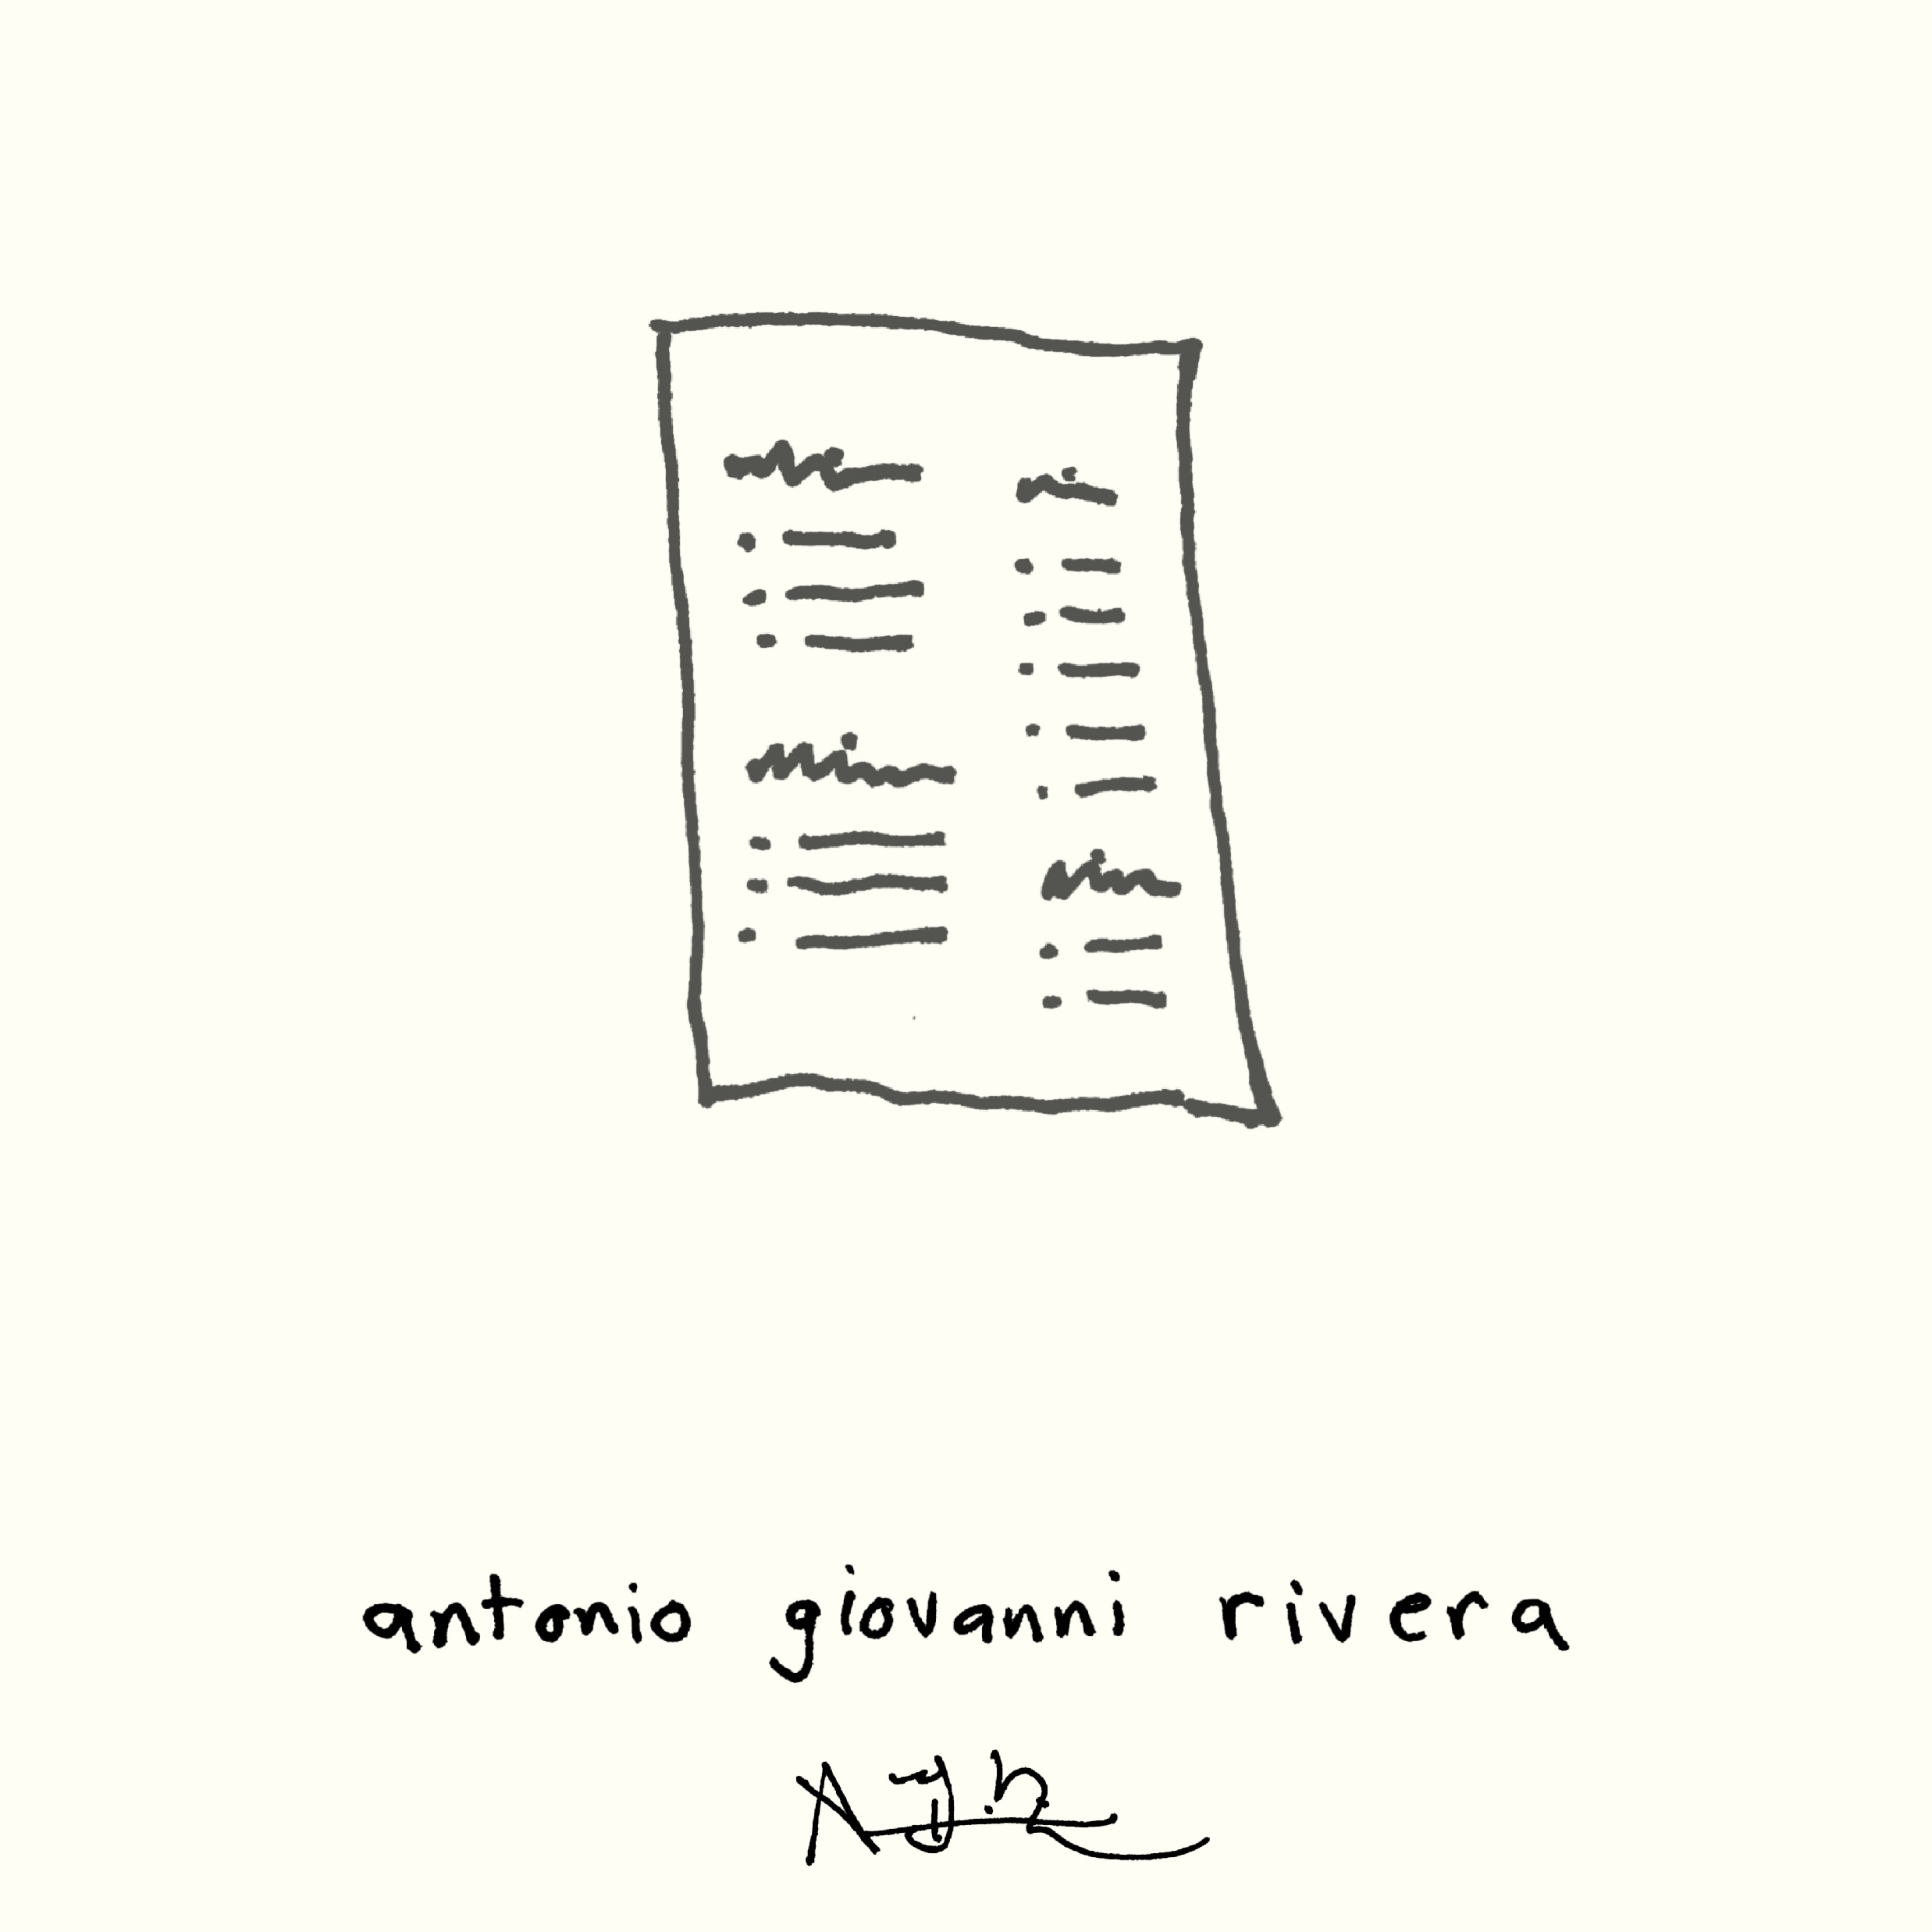 antonio giovanni rivera